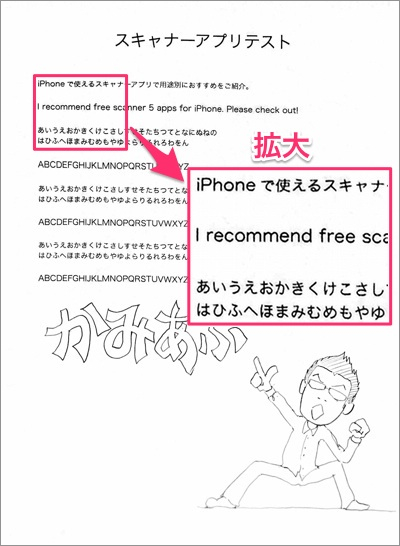 スキャナーアプリテスト
iPhoneで使えるスキャナーアプリで用途別におすすめをご紹介。
I recommend free scanner 5 apps for iPhone. Please check out!
あいうえおかきくけこさしすせそたちつてとなにぬねの
はひふへほまみむめもやゆよらりるれろわをん
ABCDEFGHIJKLMNOPQRSTUVWXYZ
あいうえおかきくけこさしすせそたちつてと
はひふへほまみむめもやゆよらりるれろわをん
ABCDEFGHIJKLMNOPQRSTUVWXYZ
あいうえおかきくけこさしすせそたちつてと
はひふへほまみむめもやゆよらりるれろわをん
ABCDEFGHIJKLMNOPQRSTUVWXYZ
拡大
iPhoneで使えるスキャナ
I recommend free sca
あいうえおかきくけこさし
はひふへほまみむめもやゆ
かみあぷ